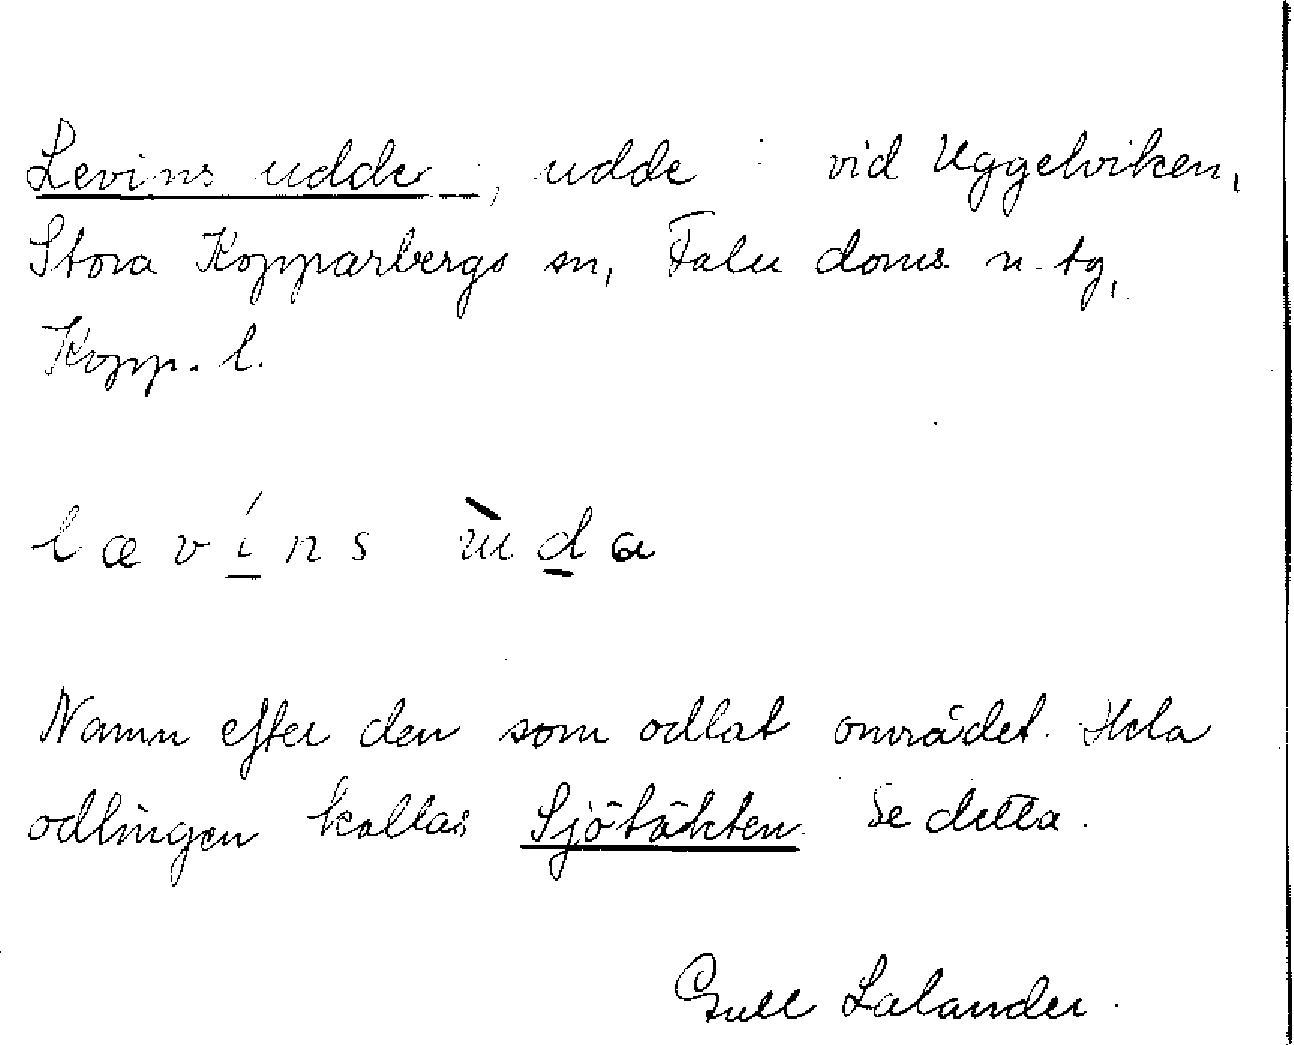 Levins udde, udde vid Uggelviken,
Stora Kopparbergs sn, Falu doms. n. tg,
Kopp. l.
l æ v í n s ùd a
Namn efter den som odlat området. Hela
odlingen kallas Sjötäkten. Se detta.
Gull Lalander.